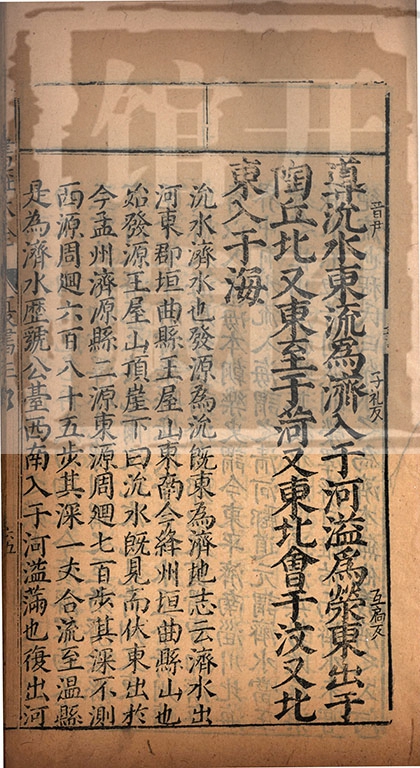 導沇水東流爲濟入于河溢爲滎東出于
陶丘北又東至于菏又東北會于汶又北
東入于海
沇水濟水也發源爲沇旣東爲濟地志云濟水出
河東郡垣曲縣王屋山東南今絳州垣曲縣山也
始發源王屋山頂崖下曰沇水旣見而伏東出於
今孟州濟源縣二源東源周廻七百步其深不測
西源周廻六百八十五步其深一丈合流至溫縣
是爲濟水歷虢公臺西南入于河溢滿也復出河
子礼反